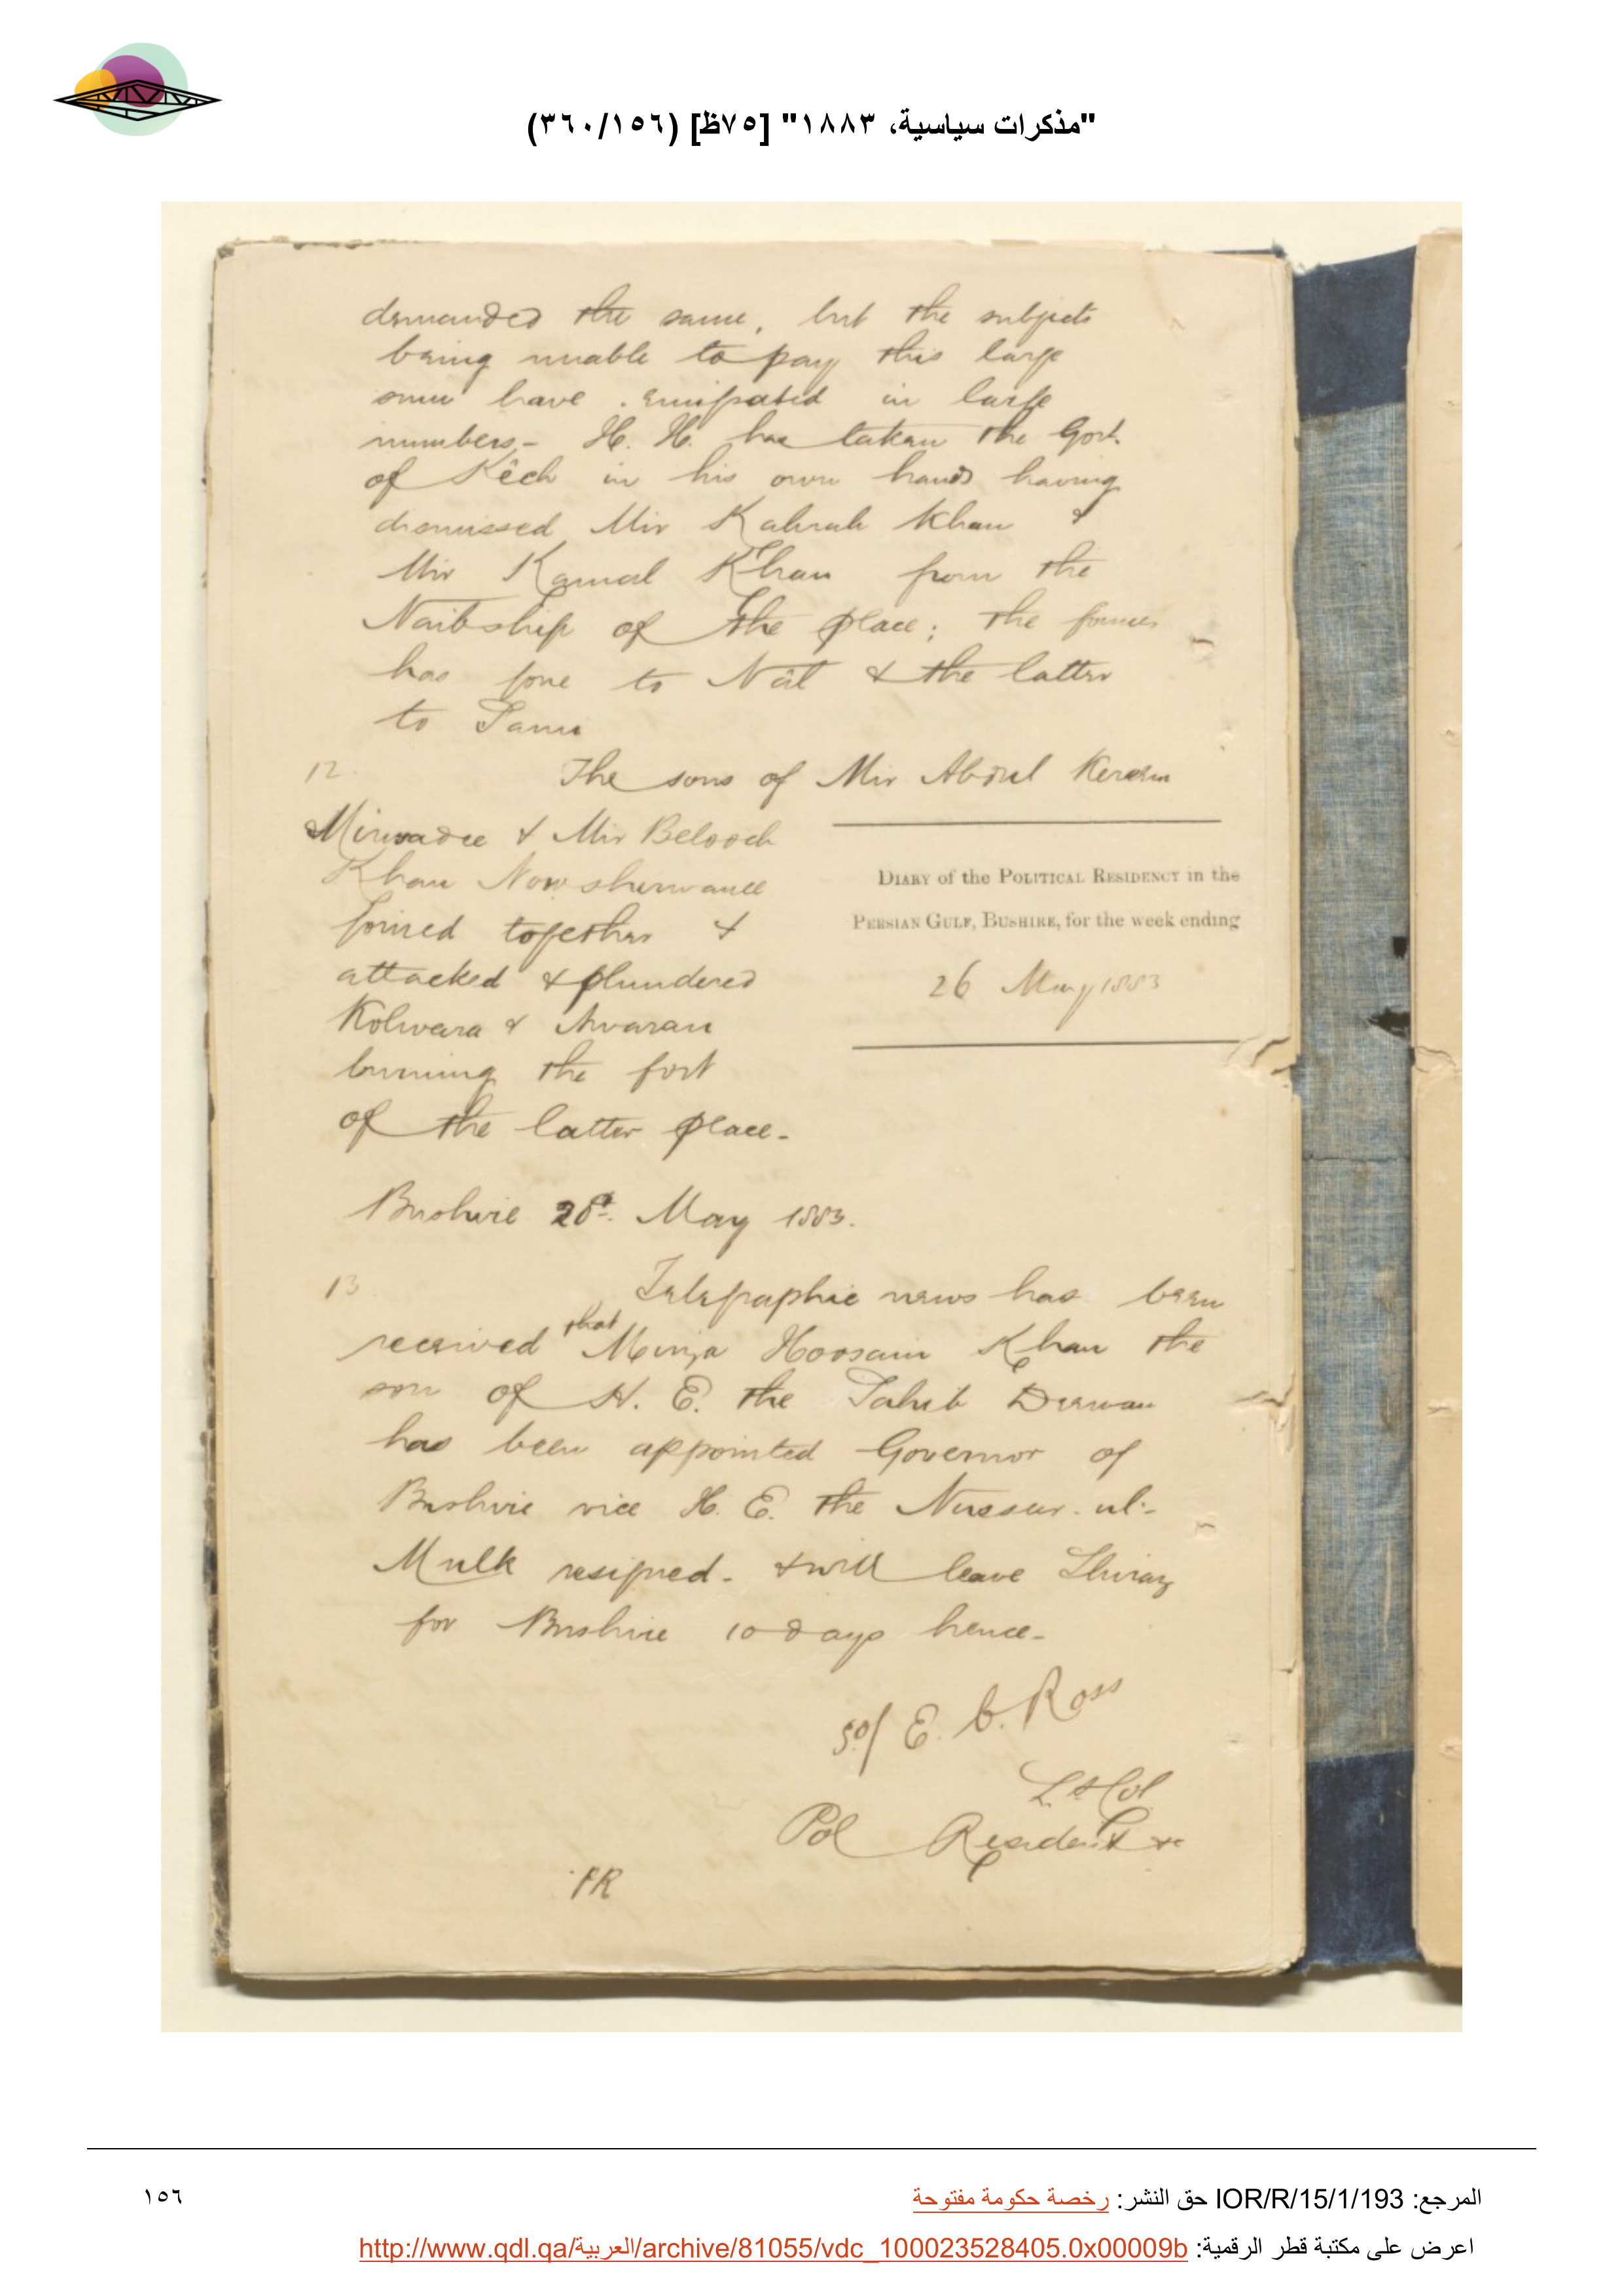 "مذكرات سياسية، ١٨٨٣" [٧٥ظ] (٣٦٠/١٥٦)
demanded the same, but the subjects
being unable to pay this large
sum have emigrated in large
numbers,- H. H. has taken the Govt.
of Kêch in his own hands having
dismissed Mir Kahrah Khan &
Mir Kamal Khan from the
Naibship of the place; the former
has gone to Nâl & the latter
to Sami
12
The sons of Mir Abdul Kereem
Mirwadee & Mir Belooch
Khan Nowsherwanee
joined together &
attacked & plundered
Kolwara & Awaran
burning the fort
of the latter place-
DIARY of the POLITICAL RESIDENCY in the
PERSIAN GULF, BUSHIRE, for the week ending
26 May 1883
Bushire 28th. May 1883.
13
Telegraphic news has been
received that Mirza Hoosain Khan the
son of H. E. the Sahib Deewan
has been appointed Governor of
Bushire vice H. E. the Nusseer-ul-
Mulk resigned- & will leave Shiraz
for Bushire 10 days hence-
Sd/ E. C. Ross
Lt Col
Pol Resident &c
PR
المرجع: IOR/R/15/1/193 حق النشر: رخصة حكومة مفتوحة
١٥٦
اعرض على مكتبة قطر الرقمية: http://www.qdl.qa/العربية/archive/81055/vdc_100023528405.0x00009b